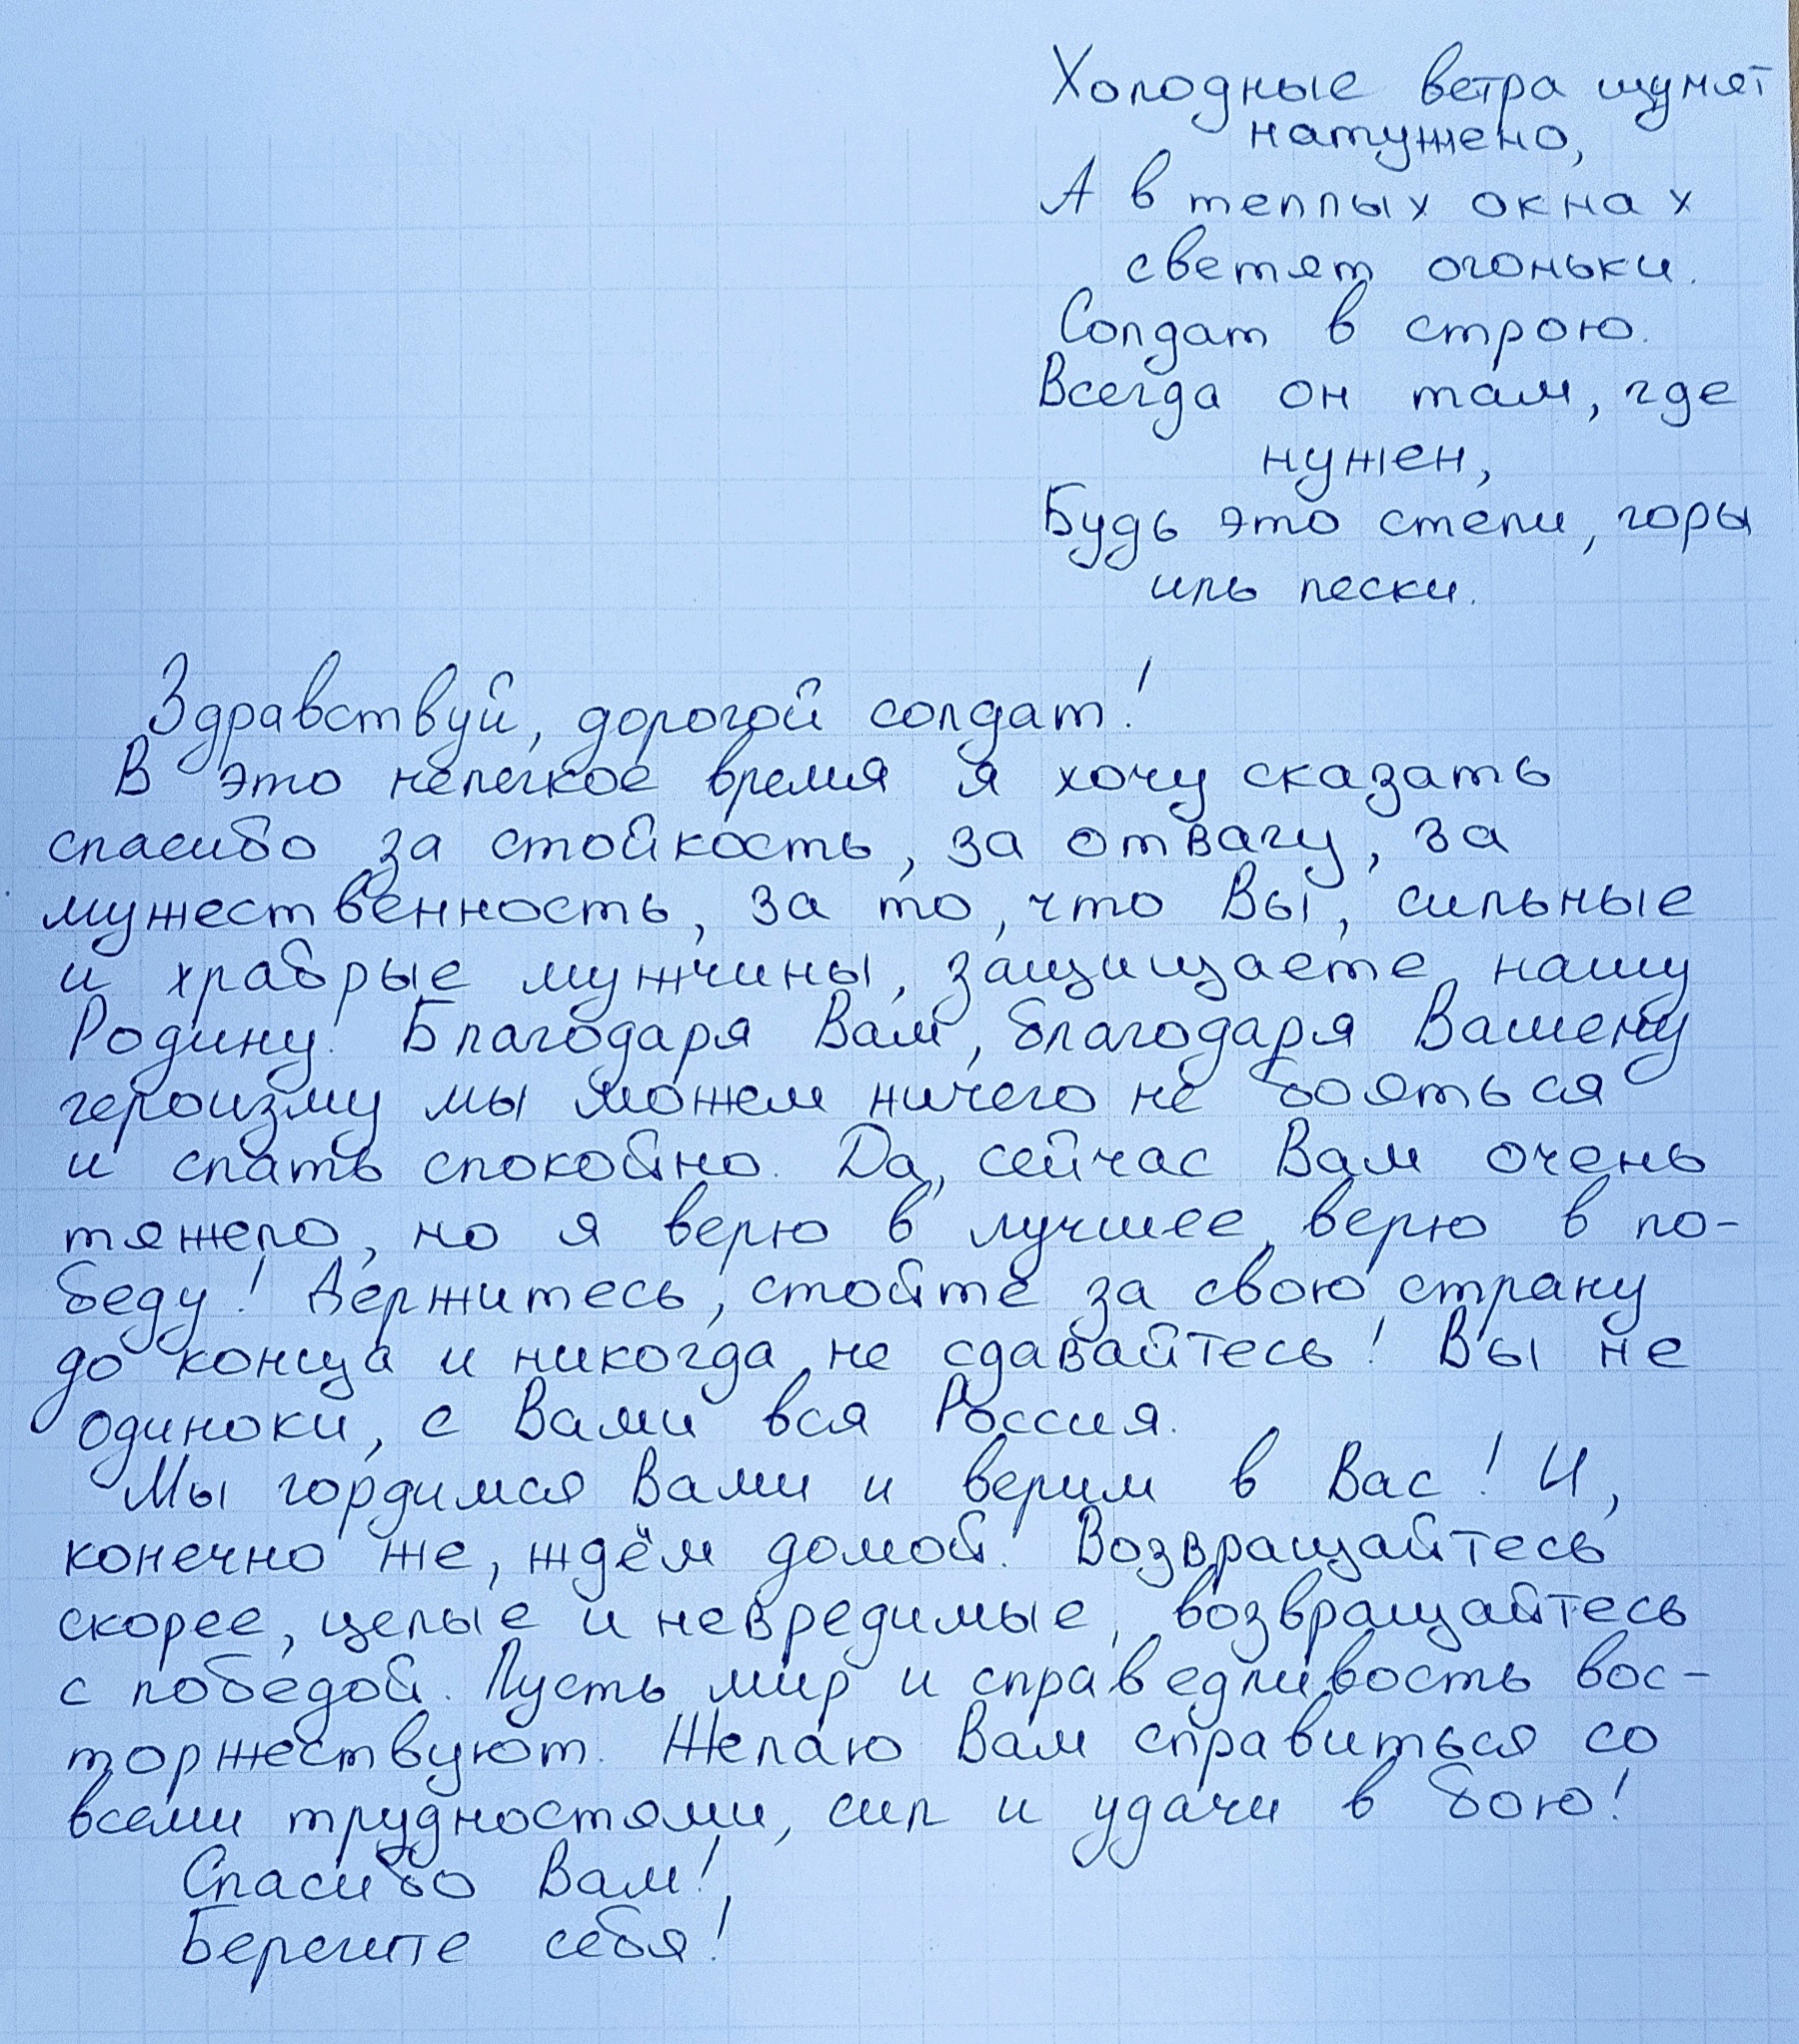 Холодные ветра шумят
натужено,
А в теплых окнах
светят огоньки.
Солдат в строю.
Всегда он там, где
нужен,
Будь это степи, горы
иль пески.
Здравствуй, дорогой солдат!
В это нелегкое время я хочу сказать
спасибо за стойкость, за отвагу, за
мужественность, за то, что Вы, сильные
и храбрые мужчины, защищаете нашу
Родину! Благодаря Вам, благодаря Вашему
героизму мы можем ничего не бояться
и спать спокойно. Да, сейчас Вам очень
тяжело, но я верю в лучшее, верю в по-
беду! Держитесь, стойте за свою страну
до конца и никогда не сдавайтесь! Вы не
одиноки, с Вами вся Россия.
Мы гордимся Вами и верим в Вас! И,
конечно же, ждём домой! Возвращайтесь
скорее, целые и невредимые, возвращайтесь
с победой. Пусть мир и справедливость вос-
торжествуют. Желаю Вам справиться со
всеми трудностями, сил и удачи в бою!
Спасибо Вам!,
Берегите себя!